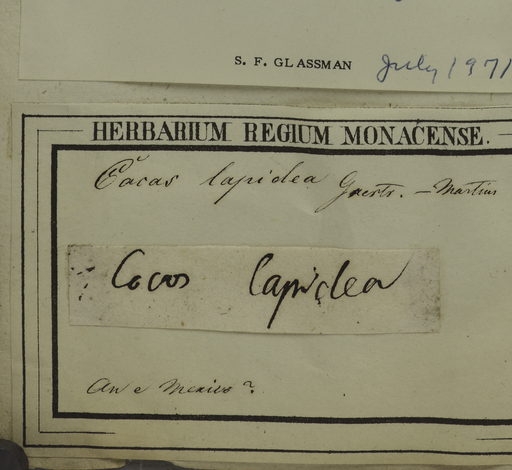 S. F. GLASSMAN July 1971
HERBARIUM REGIUM MONACENSE.
Cocos lapidea Gaertn. – Martius
Cocos lapidea
An e Mexico?